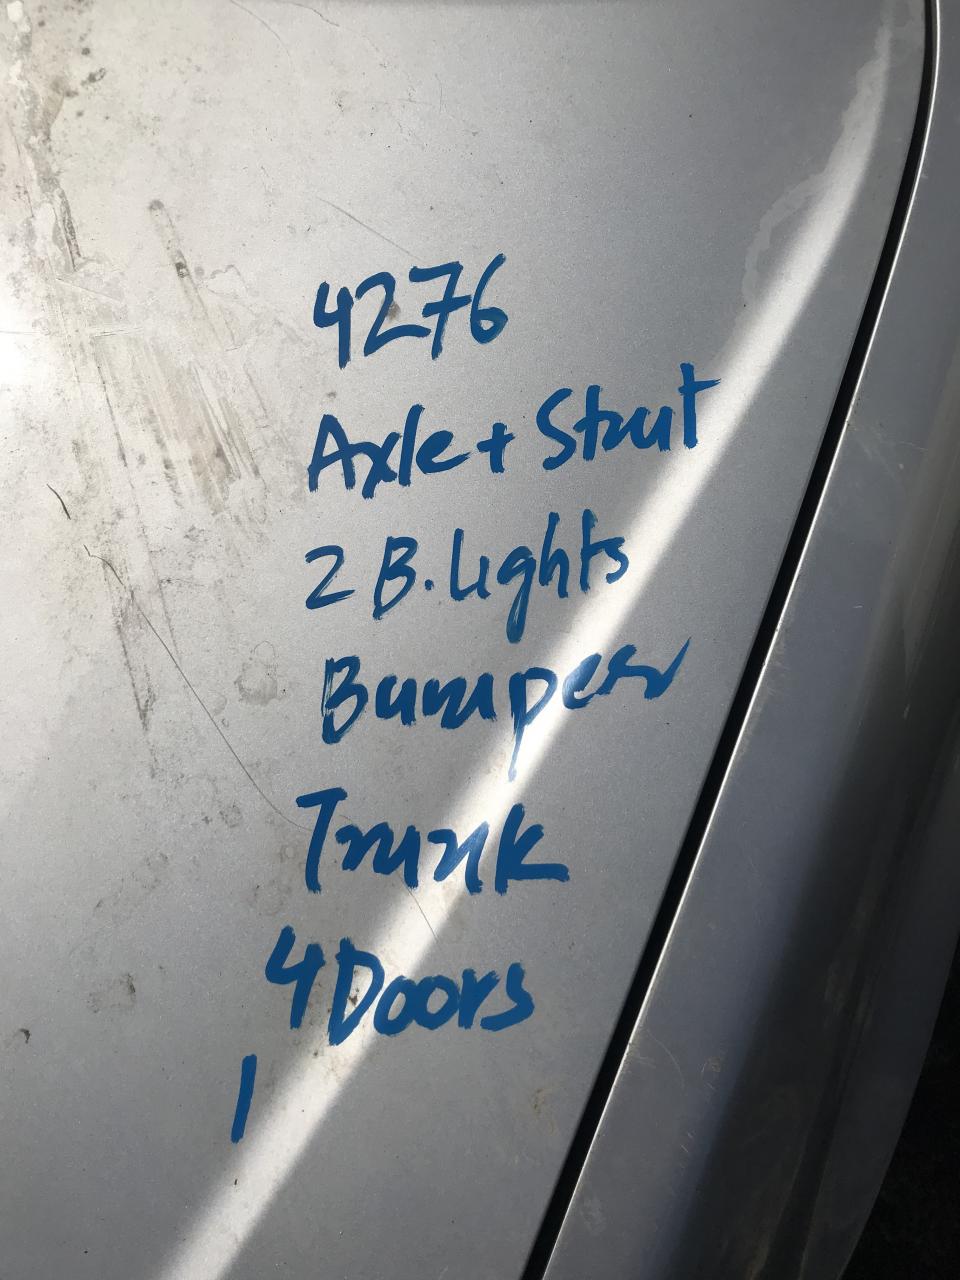 4276
Axle + Strut
2 B. Lights
Bumper
Trunk
4 Doors
1